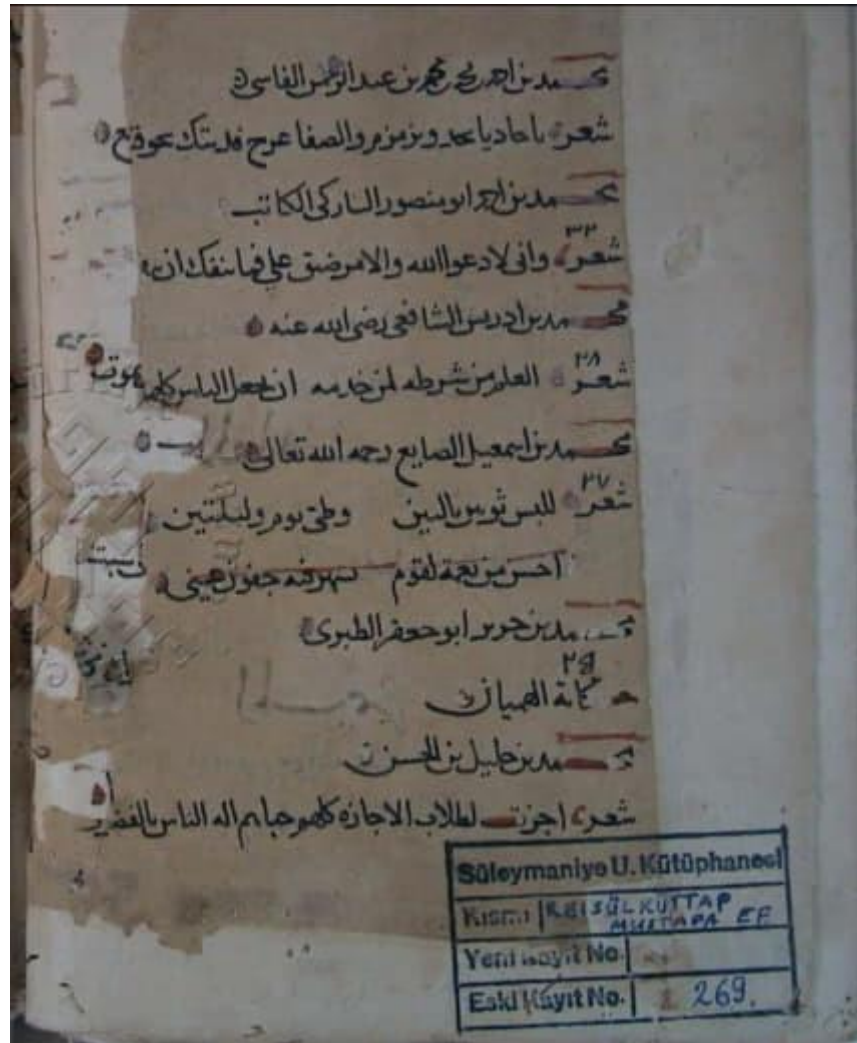 محمد بن احمد بن محمد بن عبد الرحمن الفاسي
شعر يا حاديا وبزمزم والصفا عرج فديتك نحو
محمد بن احمد ابو منصور الكاتب
٣٢
شعر واني لادعو الله والامر ضيق علي فما ينفك ان
محمد بن ادريس الشافعي رضي الله عنه
٢٨
شعر العلم من شرطه لمن خدمه ان يجعل الناس كلهم
محمد بن اسمعيل الصايغ رحمه الله تعالى
٢٧
شعر للبس ثوبين باليين وطي يوم وليلتين
احسن من نعمة لقوم جفون عيني
محمد بن جرير ابو جعفر الطبري
٢٩
حكاية الهميان
محمد بن خليل بن الحسن
شعر اجزت لطلاب الاجازة كلهم حباهم اله الناس بالفضل
4
Süleymaniye U. Kütüphanesi
Kısmı REİSÜLKÜTTAP MUSTAFA EF
Yeni Kayıt No.
Eski Kayıt No. 269.